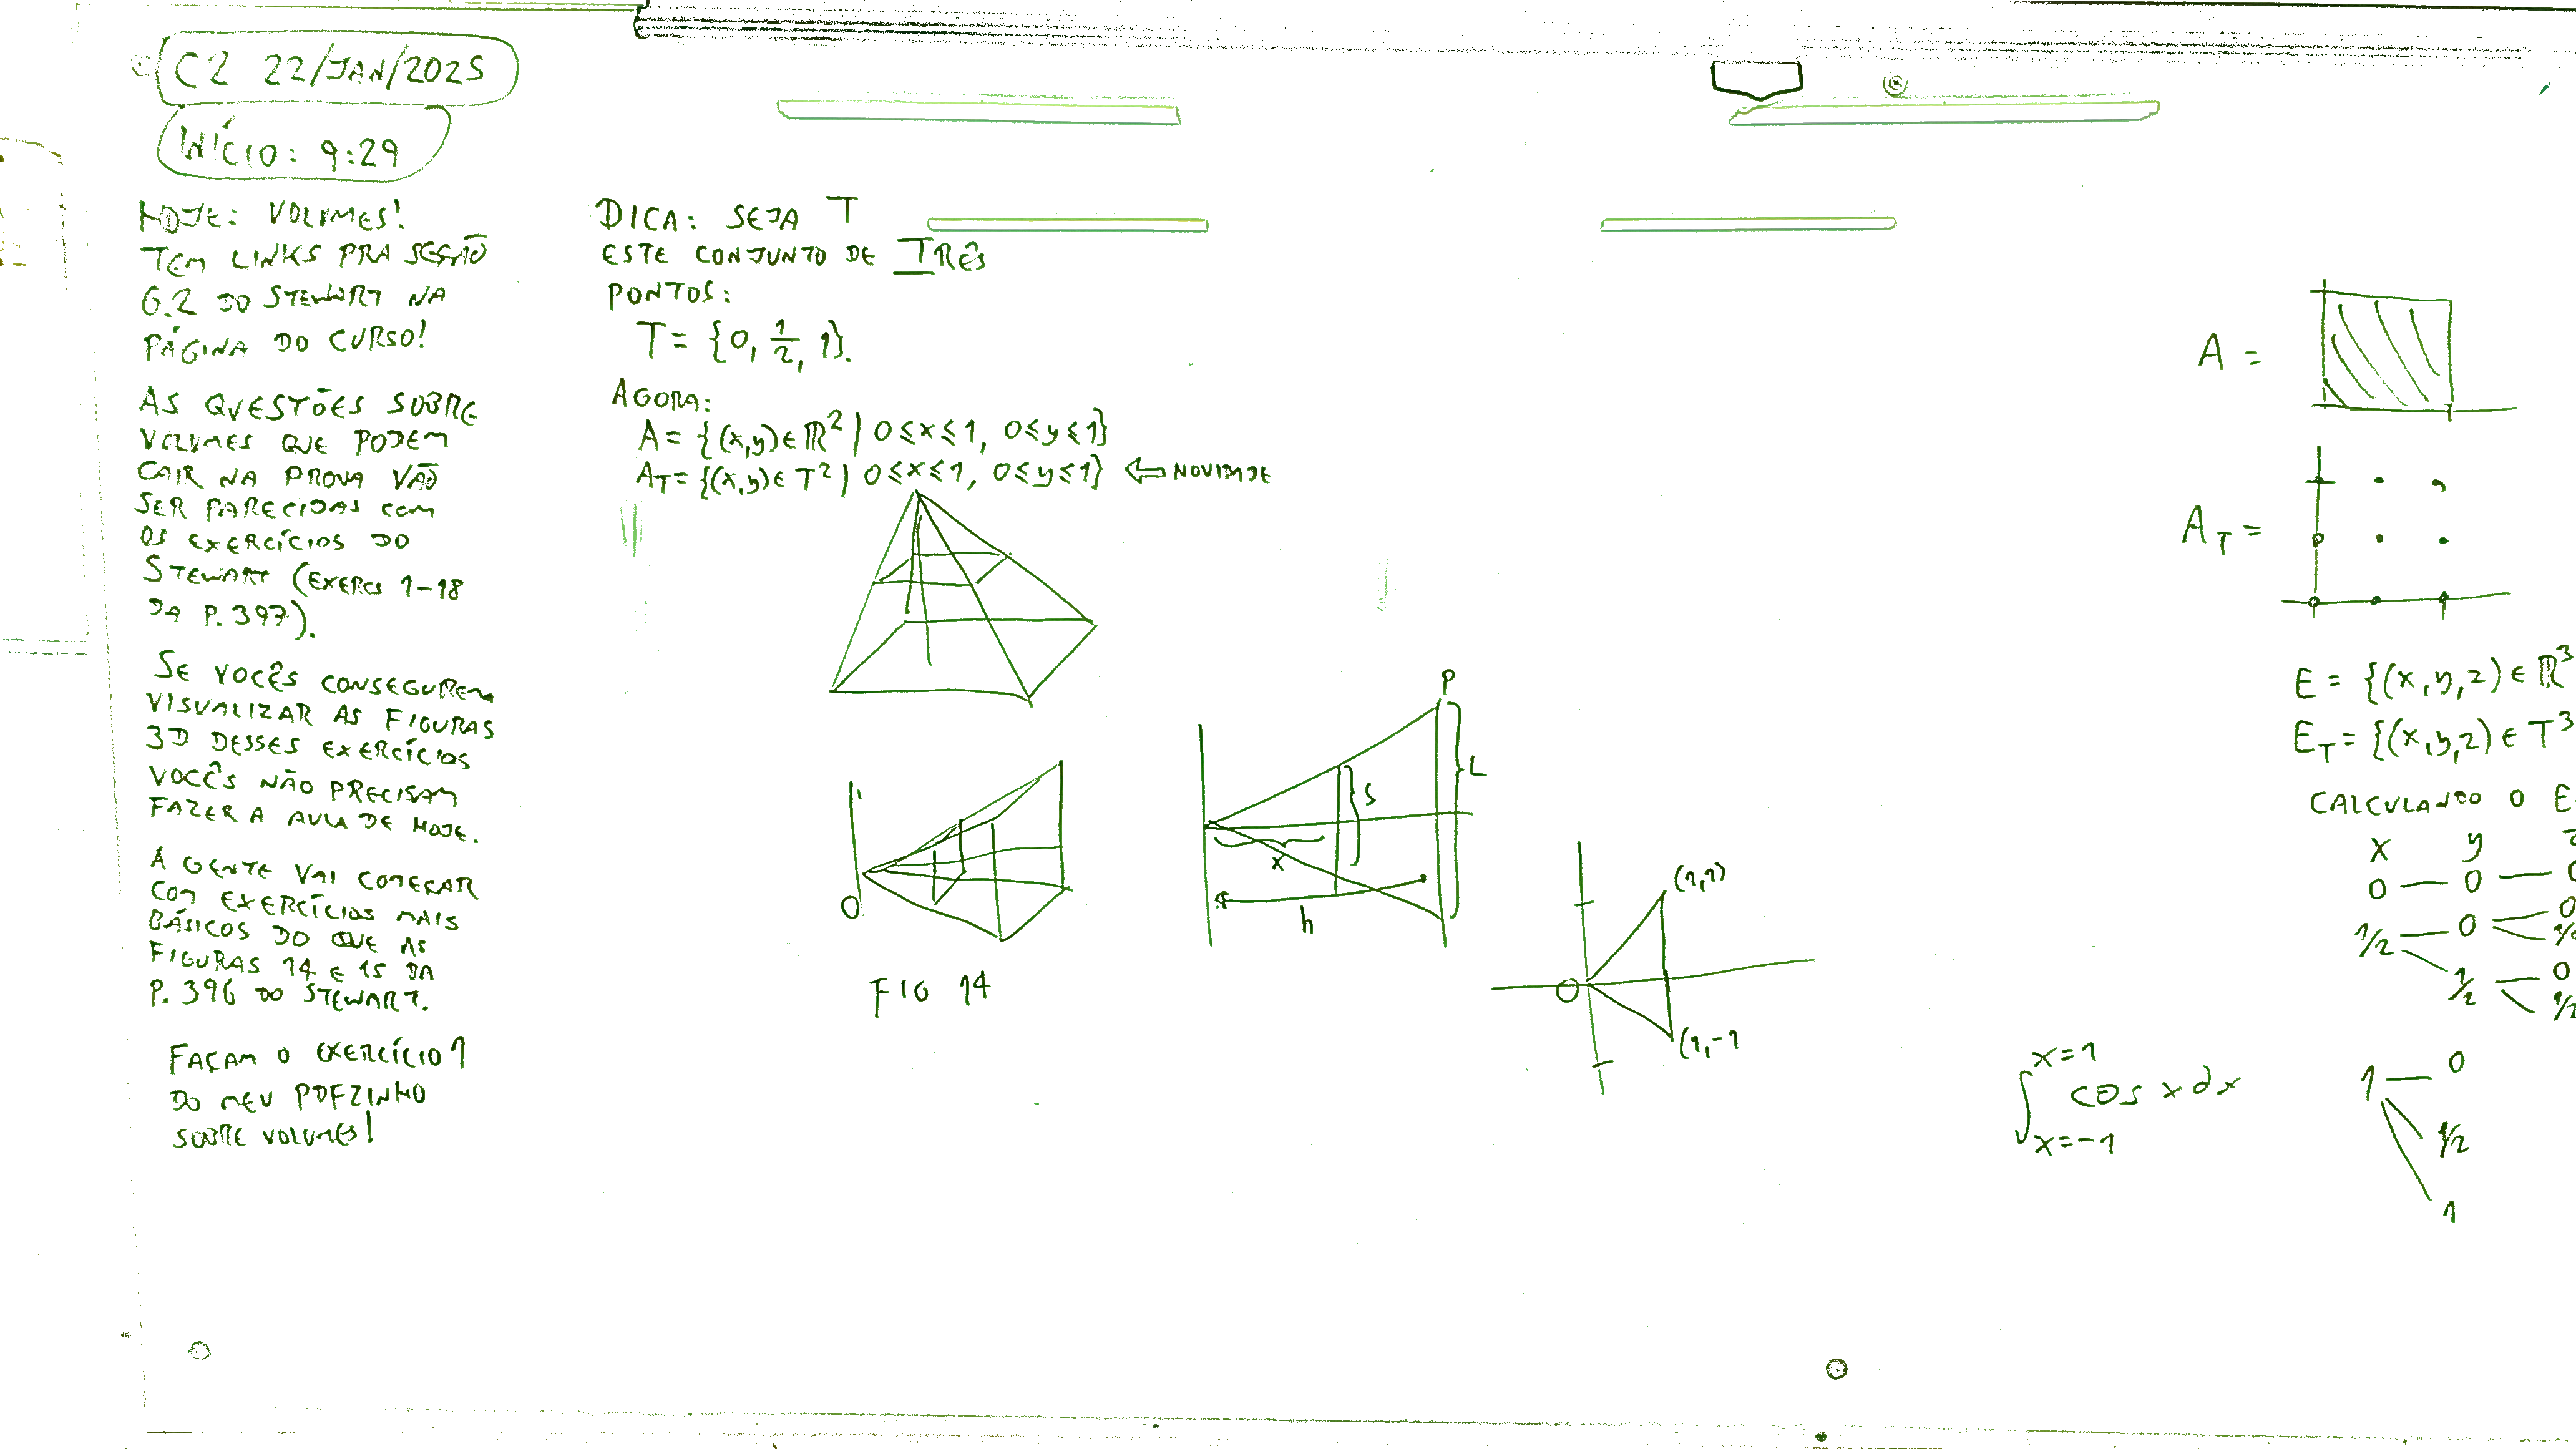 C2 22/JAN/2025
INÍCIO: 9:29
HOJE: VOLUMES!
TEM LINKS PRA SEÇÃO
6.2 DO STEWART NA
PÁGINA DO CURSO!
AS QUESTÕES SOBRE
VOLUMES QUE PODEM
CAIR NA PROVA VÃO
SER PARECIDAS COM
OS EXERCÍCIOS DO
STEWART (EXERCS 1-18
DA P. 397).
SE VOCÊS CONSEGUREM
VISUALIZAR AS FIGURAS
3D DESSES EXERCÍCIOS
VOCÊS NÃO PRECISAM
FAZER A AULA DE HOJE.
A GENTE VAI COMEÇAR
COM EXERCÍCIOS MAIS
BÁSICOS DO QUE AS
FIGURAS 14 E 15 DA
P. 396 DO STEWART.
FAÇAM O EXERCÍCIO 1
DO MEU PDFZINHO
SOBRE VOLUMES!
DICA: SEJA T
ESTE CONJUNTO DE TRÊS
PONTOS:
T = {0, 1/2, 1}.
AGORA:
A = {(x,y) ∈ ℝ² | 0≤x≤1, 0≤y≤1}
A_T = {(x,y) ∈ T² | 0≤x≤1, 0≤y≤1} ⇐ NOVIDADE
O
FIG 14
P
L
S
x
h
O
(1,1)
(1,-1
A =
A_T =
E = {(x,y,z) ∈ ℝ³
E_T = {(x,y,z) ∈ T³
CALCULANDO O E
x y
0 — 0 —
1/2 — 0 0
1/2 0
1 — 0
1/2
1
∫_{x=-1}^{x=1} cos x dx